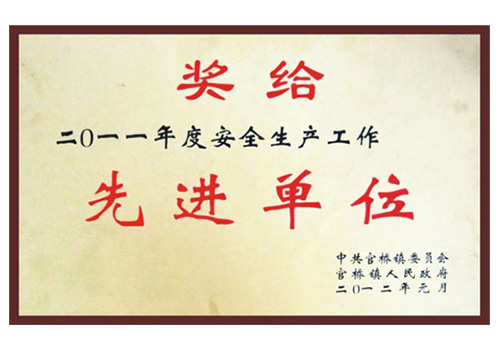 奖给
二〇一一年度安全生产工作
先进单位
中共官桥镇委员会
官桥镇人民政府
二〇一二年元月